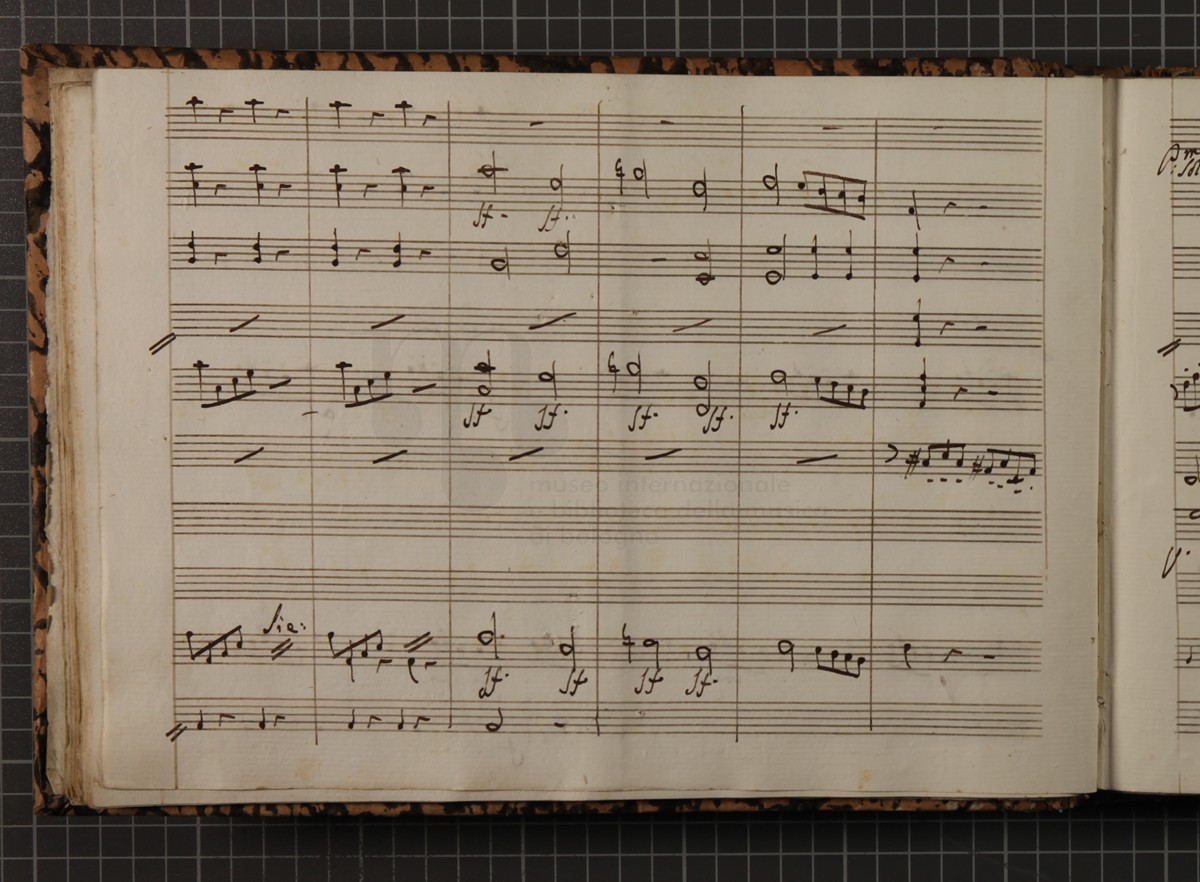 sf. sf.
sf. sf. sf. sf. sf.
museo internazionale
e biblioteca della musica
di bologna
sf. sf. sf. sf.